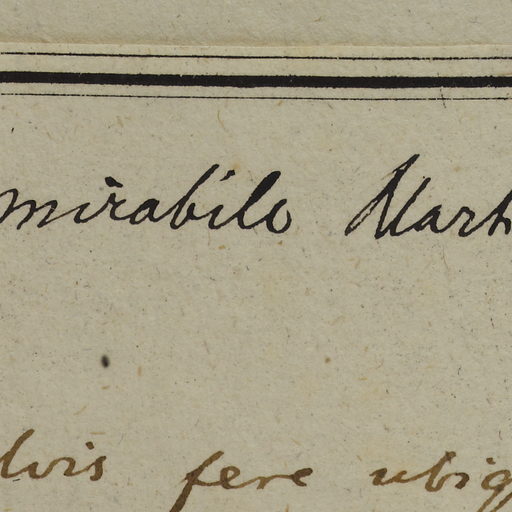 mirabile Mart
lvis fere ubiq